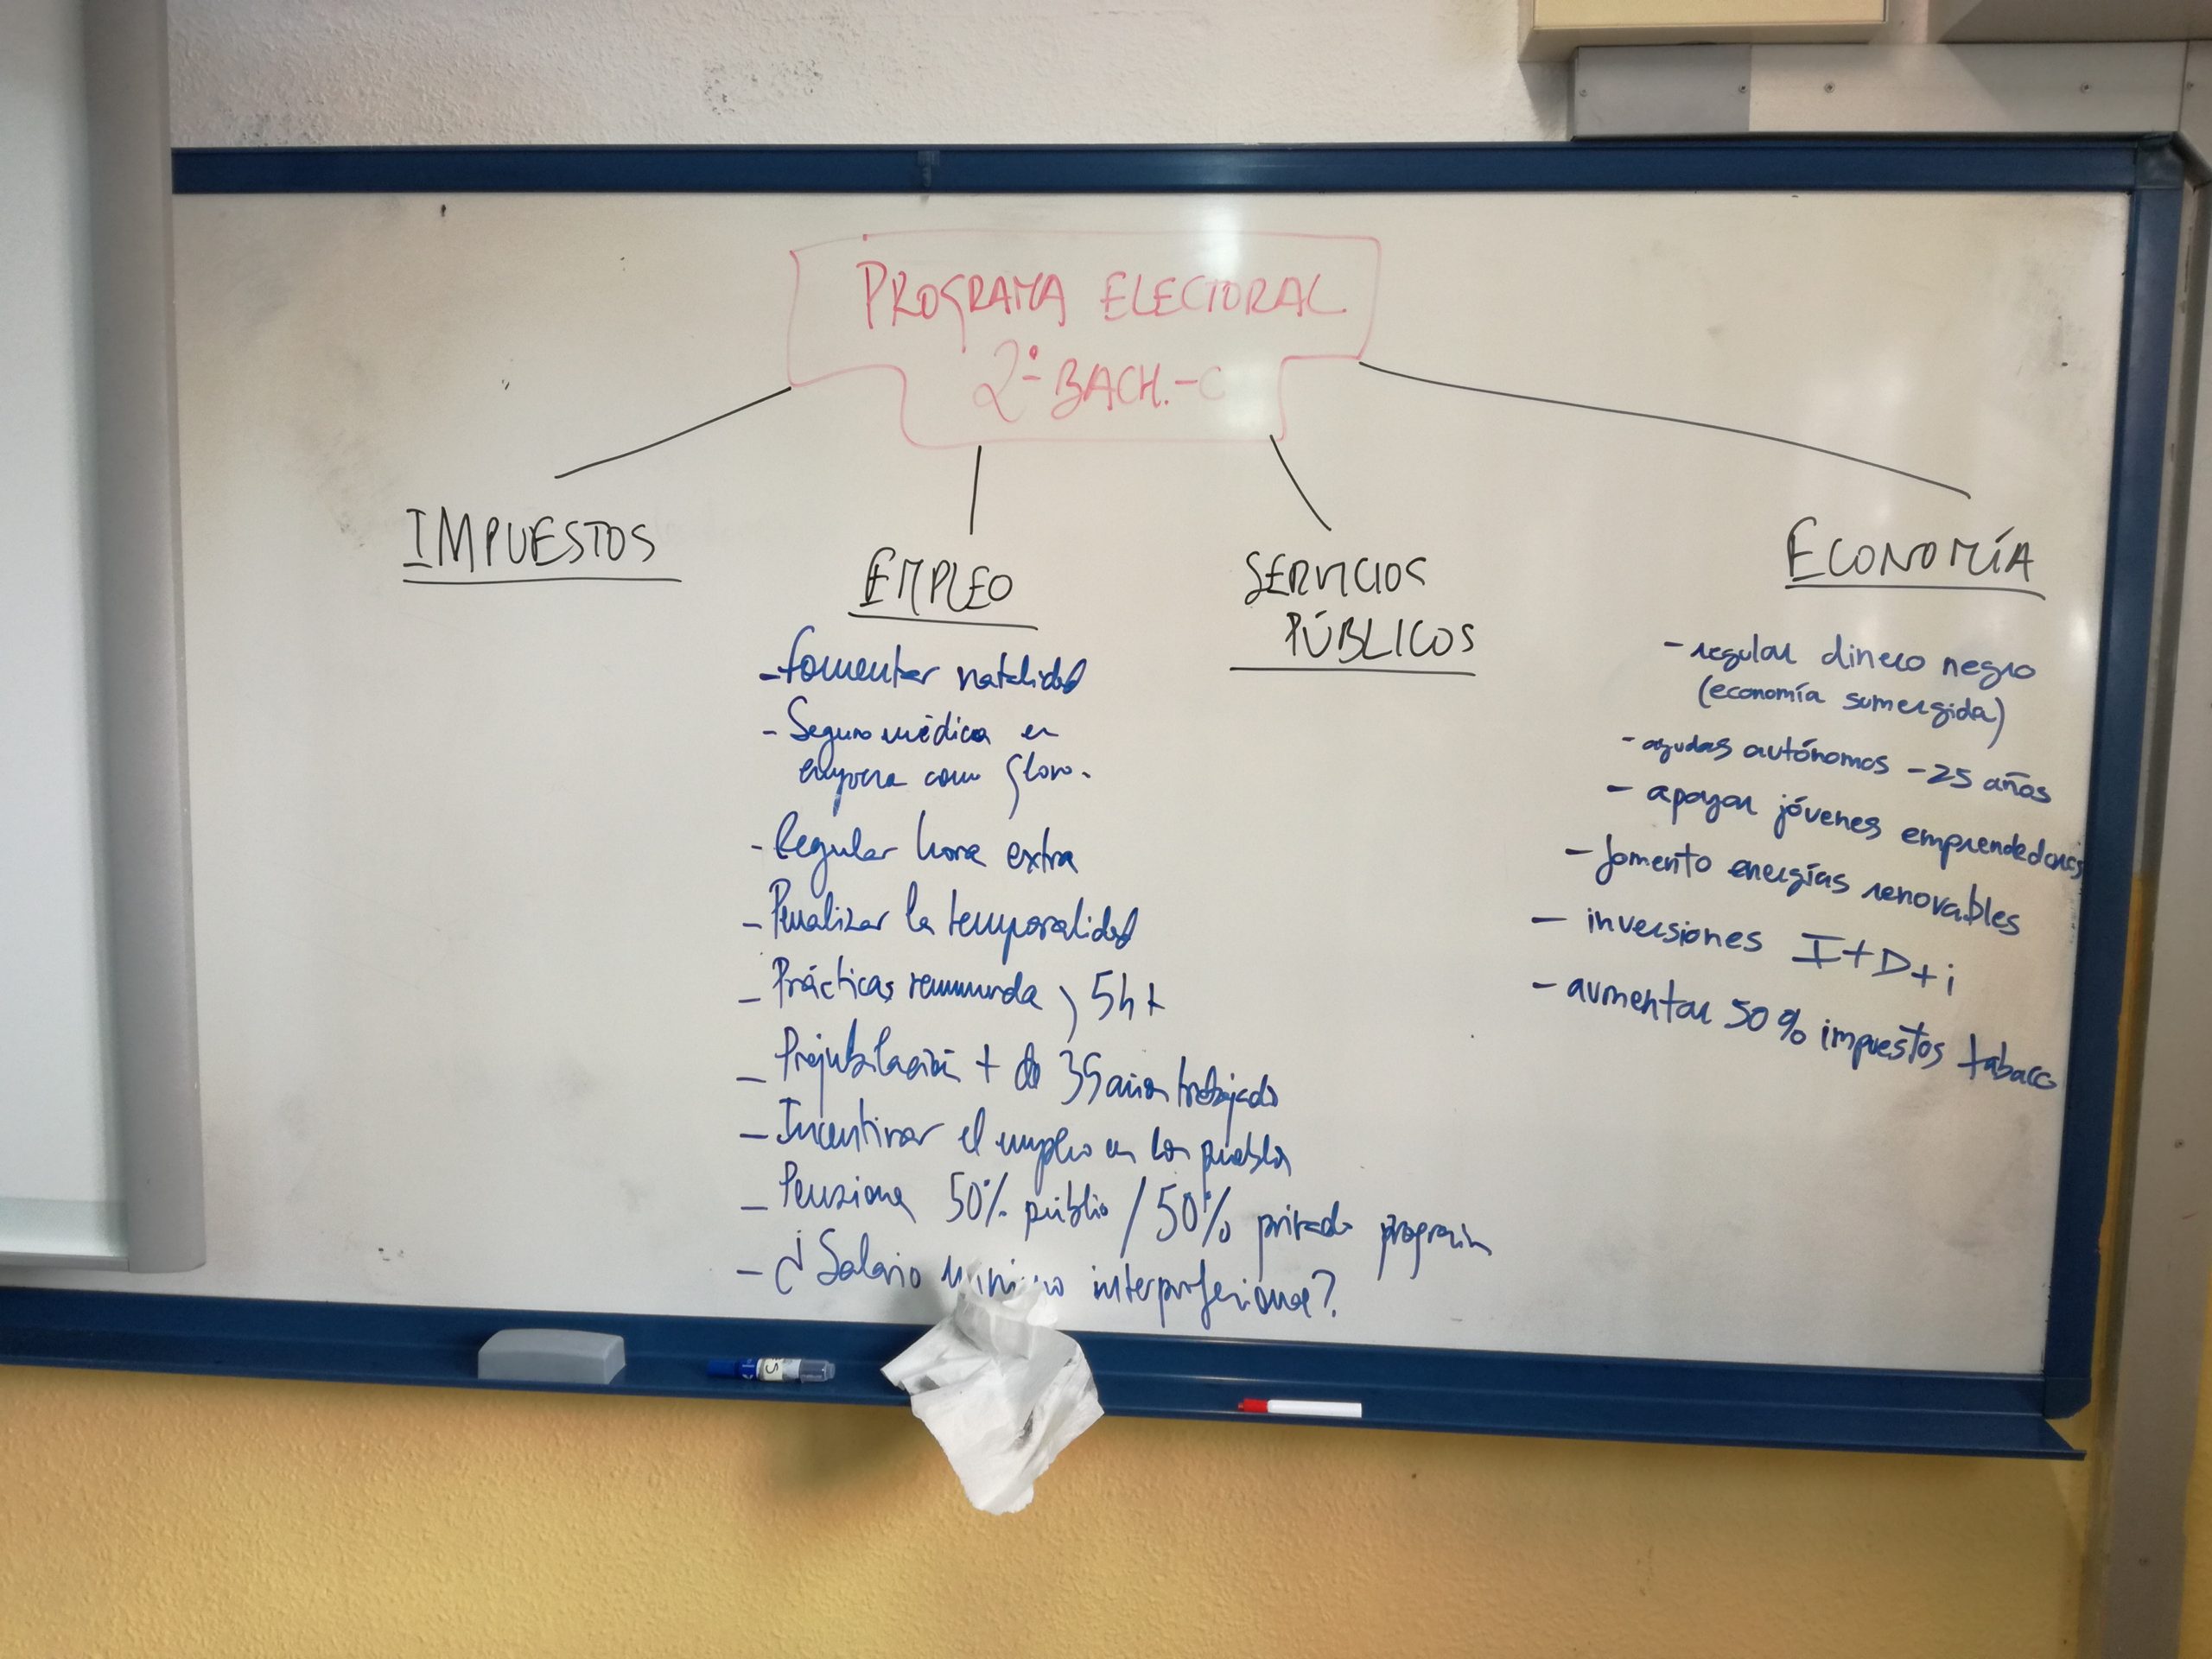 PROGRAMA ELECTORAL
2º BACH.-C
IMPUESTOS
EMPLEO
- fomentar natalidad
- Seguro médico en
empresa como Glovo.
- Regular hora extra
- Penalizar la temporalidad
- Prácticas remunerada > 5h +
- Prejubilación + de 35 años trabajado
- Incentivar el empleo en los pueblos
- Pensiones 50% público / 50% privado
- ¿Salario mínimo interprofesional?
SERVICIOS
PÚBLICOS
ECONOMÍA
- regular dinero negro
(economía sumergida)
- ayudas autónomos -25 años
- apoyar jóvenes emprendedores
- fomento energías renovables
- inversiones I+D+i
- aumentar 50% impuestos tabaco